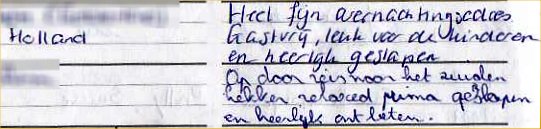 Heel fijn overnachtingsadres
Holland
Gastvrij, leuk voor de kinderen
en heerlijk geslapen
Op doorreis naar het zuiden
hebben relaxed prima geslapen
en heerlijk ontbeten.